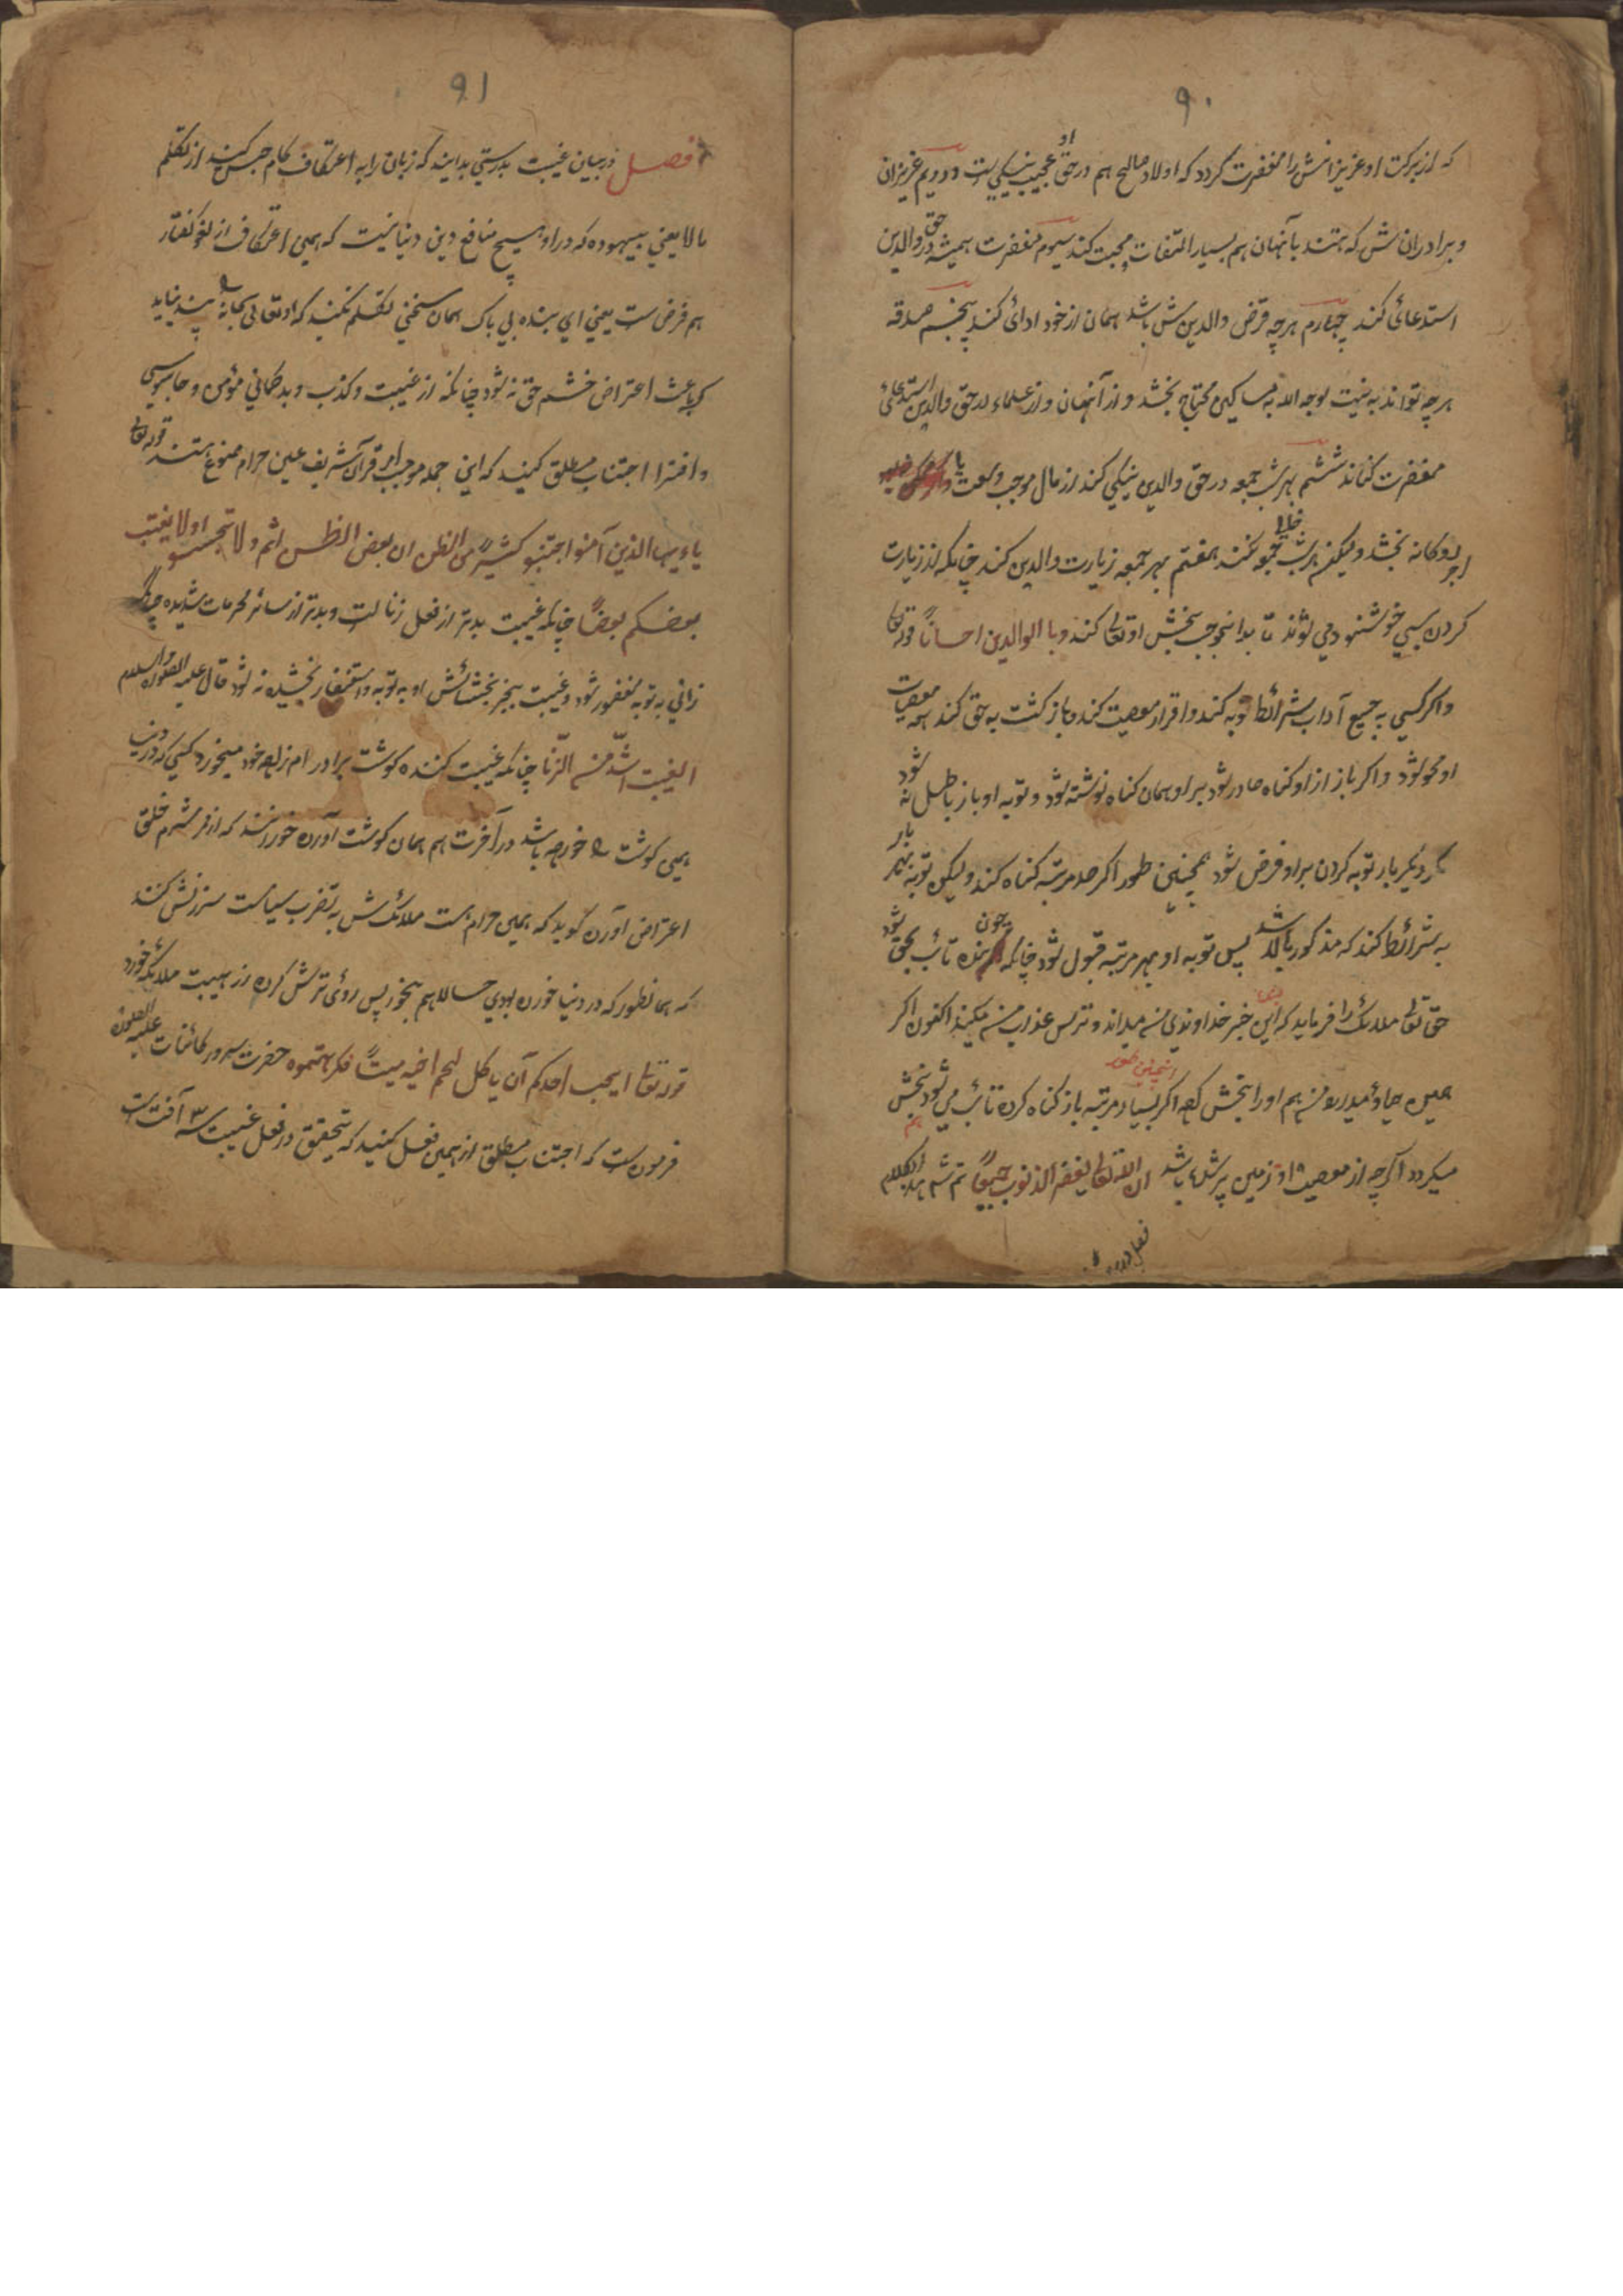 ۹۰
که از برکت او عزیزانش را مغفرت گردد که اولاد صالح هم در حق او عجیب نیکی است دوویم عزیزان
و برادران ش که هستند بآنهان هم بسیار التفات و محبت کند سیوم مغفرت همیشه در حق والدین
استدعائی کند چهارم هرچه قرض والدین ش باشد همان از خود ادائی کند پنجم صدقه
هرچه تواند به نیت لوجه الله به مساکین محتاج بخشد و از آنهان و از علماء در حق والدین استدعائی
مغفرت کناند ششم بهر شب جمعه در حق والدین نیکی کند از مال موجب وسعت یا
اجر دوکانه بخشد ولیکن هر شب جمعه خالی نکند هفتم بهر جمعه زیارت والدین کند چنانکه از زیارت
کردن سی خوشنود می شوند تا بدا نموجب بخشش او تعالی کند وبا الوالدین احساناً قوله تعالی
واگر کسی به جمیع آداب شرائط توبه کند و اقرار معصیت کند و باز گشت به حق کند همه معصیات
او محو شود واگر باز از او گناه صادر شود بر او همان گناه نوشته شود و توبه او باز باطل نه شود
مگر دیگر بار توبه کردن بر او فرض شود همچنین طور اگر صد مرتبه گناه کند ولیکن توبه بهر بار
به شرائط کند که مذکور بالا باشد پس توبه او بهر مرتبه قبول شود چنانکه چون بنده تائب بحق شود
حق تعالی ملائک را فرماید که این خبر خداوندی من میداند و ترس عذاب من میکند اکنون اگر
همین حیاؤ میدارد من هم او را بخشش کنم اگر بسیار مرتبه اینچنین طور باز گناه کرده تائب می شود بخشش هم
میکردد اگرچه از معصیت او زمین پر شده باشد ان الله تعالی یغفر الذنوب جمیعاً تم تم هذا الکلام
فصل در
۹۱
فصل در بیان غیبت بدرستی بدانید که زبان را به اعتکاف کام حبس کنید از تکلم
ما لا یعنی بیهوده که در او هیچ منافع دین دنیا نیست که همین اعتکاف از لغو گفتار
هم فرض ست یعنی ای بنده بی باک همان سخنی تکلم نکنید که او تعالی سبحانه را پسند نیاید
که باعث اعتراض خشم حق نه شود چنانکه از غیبت و کذب و بدگمانی مؤمن و جاسوسی
و افترا اجتناب مطلق کنید که این جمله موجب امر قرآن شریف عین حرام ممنوع هستند قوله تعالی
یاءیها الذین آمنو اجتنبو کثیرً من الظن ان بعض الظن اثم ولا تجسسو اولا یغتب
بعضکم بعضاً چنانکه غیبت بدتر از فعل زنا است و بدتر از سائر محرمات شدیده
زانی به توبه مغفور شود و غیبت بجز بخشائش او به توبه و استغفار بخشیده نه شود قال علیه الصلوة والسلام
الغیبت اشدّ من الزّنا چنانکه غیبت کننده گوشت برادر ام زاده خود میخورد کسی که در دنیا
همین گوشت را خورده باشد در آخرت هم همان گوشت آورده خورانند که از شرم خلق
اعتراض آورده گوید که همین حرام ست ملائک ش به تضرب سیاست سرزنش کنند
که همانطور که در دنیا خورده بودی حالا هم بخور پس روئی ترش کرده از هیبت ملائکه خورد
قوله تعالی ایحب احدکم آن یاکل لحم اخیه میتاً فکرهتموه حضرت سرور کائنات علیه الصلوة
فرموده ست که اجتناب مطلق از همین فعل کنید که تحقیق در فعل غیبت سه ۳ آفت ست